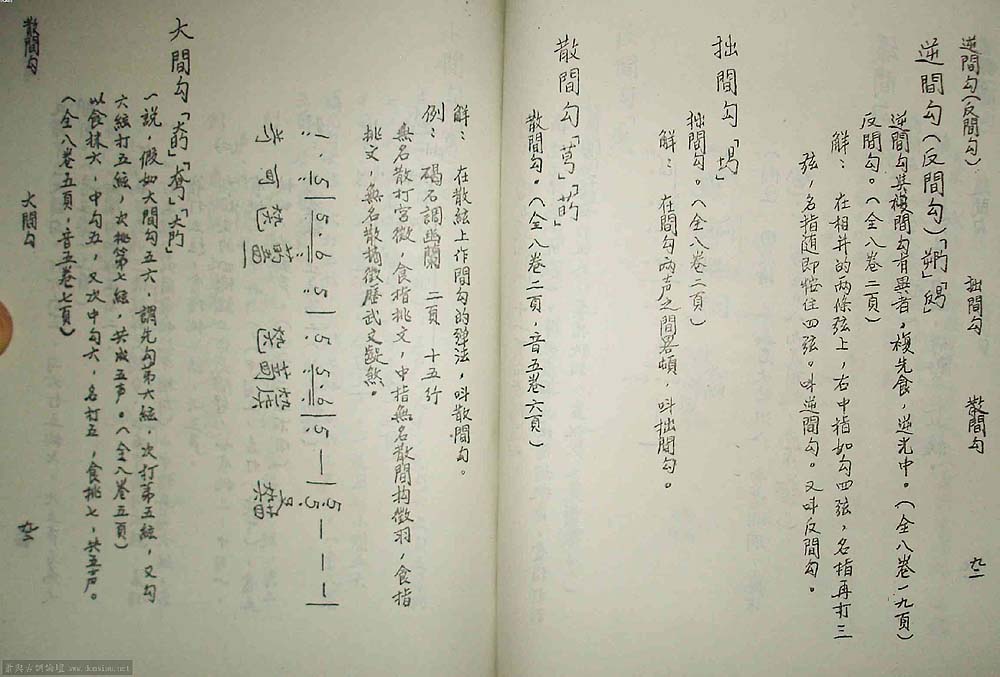 逆間勾(反間勾)
拙間勾
散間勾
九一
逆間勾(反間勾)
逆間勾與複間勾有異者,複先食,逆先中。(全八卷一九頁)
反間勾。(全八卷二頁)
解: 在相并的兩條弦上,右中指如勾四弦,名指再打三
弦,名指随即按住四弦。叫逆間勾。又叫反間勾。
拙間勾
拙間勾。(全八卷二頁)
解: 在間勾兩声之間畧頓,叫拙間勾。
散間勾
散間勾。(全八卷二頁,音五卷六頁)
解: 在散絃上作間勾的彈法,叫散間勾。
例: 碣石調幽蘭 二頁 十五行
無名散打宮徵,食指挑文,中指無名散間拘徵羽,食指
挑文,無名散摘徵應武文齪煞。
大間勾
一說,假如大間勾五六,謂先勾第六絃,次打第五絃,又勾
六絃打五絃,次挑第七絃,共成五声。(全八卷五頁)
以食抹六,中勾五,又次中勾六,名打五,食挑七,共五声。
(全八卷五頁,音五卷七頁)
散間勾
大間勾
九二
www.donsimu.net